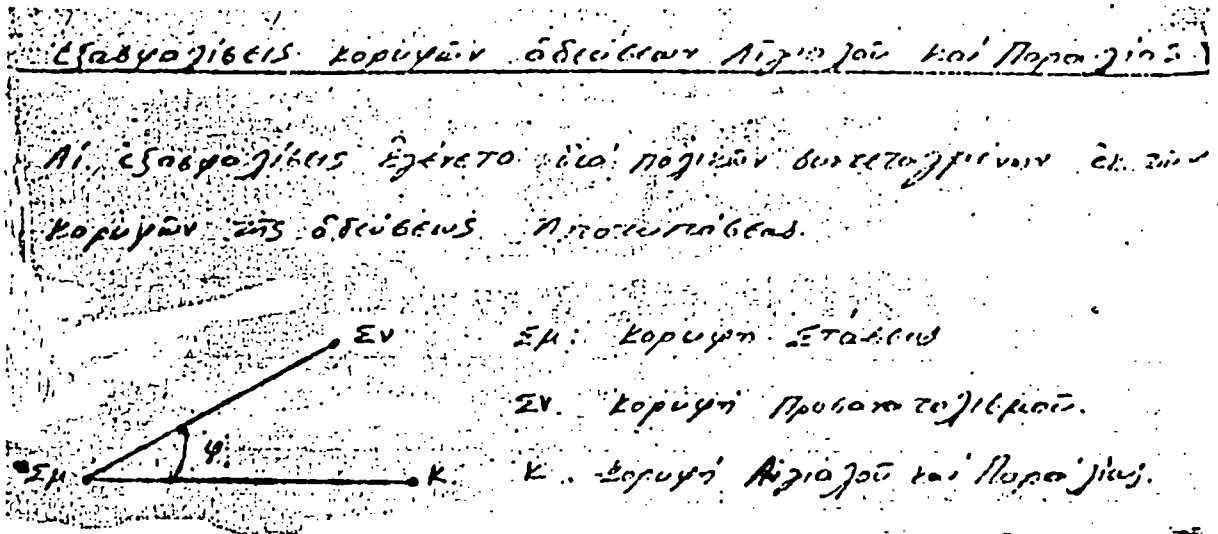 Εξασφαλίσεις κορυφών οδεύσεων Αἰγιαλοῦ καί Παραλίας
Αἱ ἐξασφαλίσεις ἐγένετο διά πολικῶν συντεταγμένων ἐκ τῶν
κορυφῶν τῆς ὁδεύσεως Αποτυπώσεως.
Σν
Σμ: Κορυφή Στάσεως
Σν. Κορυφή Προσανατολισμοῦ.
φ.
Σμ
Κ.
Κ. Κορυφή Αἰγιαλοῦ καί Παραλίας.